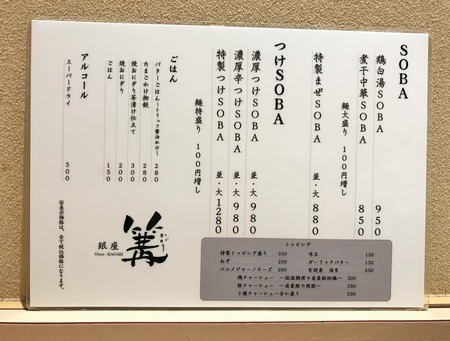 SOBA
鶏白湯SOBA 950
煮干中華SOBA 850
麺大盛り 100円増し
特製まぜSOBA 並・大 880
つけSOBA
濃厚つけSOBA 並・大 980
濃厚辛つけSOBA 並・大 980
特製つけSOBA 並・大 1280
麺特盛り 100円増し
ごはん
バターごはん〜トリュフ醤油かけ〜 280
たまごかけ御飯 280
焼おにぎり茶漬け仕立て 300
焼おにぎり 200
ごはん 150
アルコール
スーパードライ 500
※表示価格は、全て税込価格になります。
銀座
Ginza - KAGARI
篝
かがり
トッピング
特製トッピング盛り 350
ねぎ 200
パルメジャーノチーズ 200
味玉 120
ガーリックバター 150
有明産 海苔 250
鶏チャーシュー 300
豚チャーシュー 350
2種チャーシュー合い盛り 350